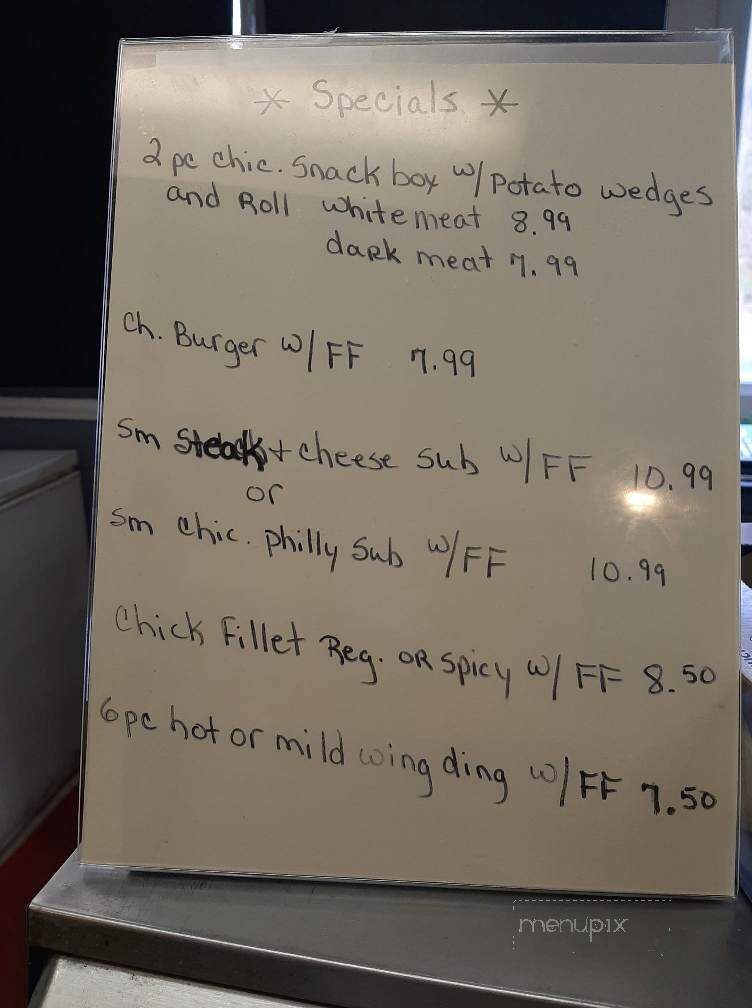 * Specials *
2 pc chic. Snack box w/ Potato wedges
and Roll white meat 8.99
dark meat 7.99
Ch. Burger w/ FF 7.99
Sm Steak + cheese sub w/ FF 10.99
or
Sm chic. philly sub w/ FF 10.99
Chick Fillet Reg. OR Spicy w/ FF 8.50
6 pc hot or mild wing ding w/ FF 7.50
menupix